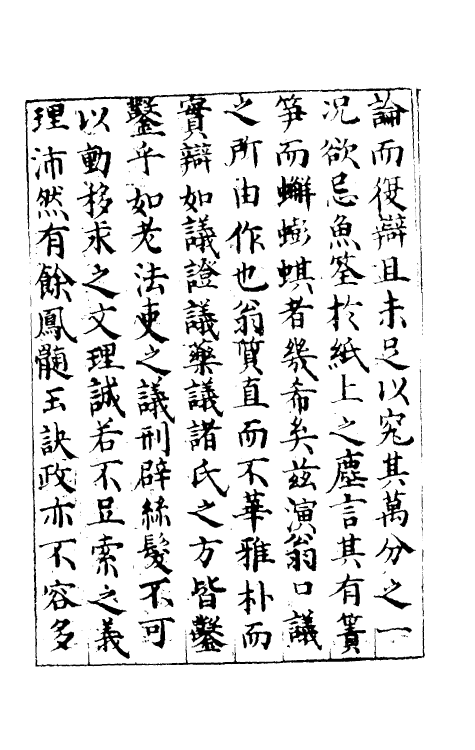 論而復辯且未足以窮其萬分之一
況欲忌魚筌於紙上之塵言其有簣
筝而蠏蟛蜞者幾希矣茲演翁口議
之所由作也翁質直而不華雅朴而
實辯如議證議藥議諸氏之方皆鑿
鑿乎如老法吏之議刑辟絲髮不可
以動移求之文理誠若不足索之義
理沛然有餘鳳髓玉訣政亦不容多